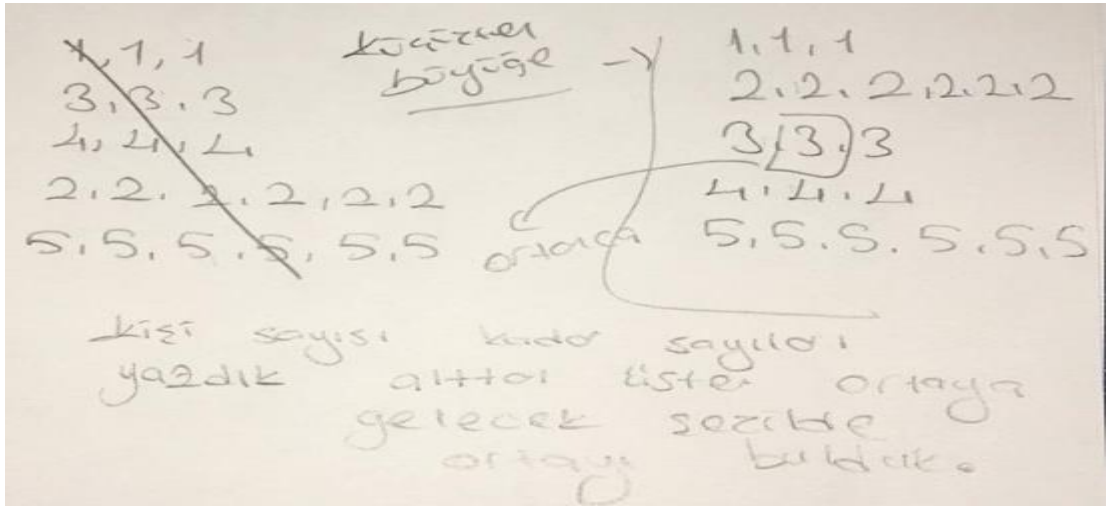 1, 1, 1
3, 3, 3
4, 4, 4
2, 2, 2, 2, 2, 2
5, 5, 5, 5, 5, 5
küçükten
büyüğe
1, 1, 1
2, 2, 2, 2, 2, 2
3, 3, 3
4, 4, 4
5, 5, 5, 5, 5, 5
ortanca
kişi sayısı kadar sayıları
yazdık alttal üstel ortaya
gelecek şekilde
ortayı bulduk.